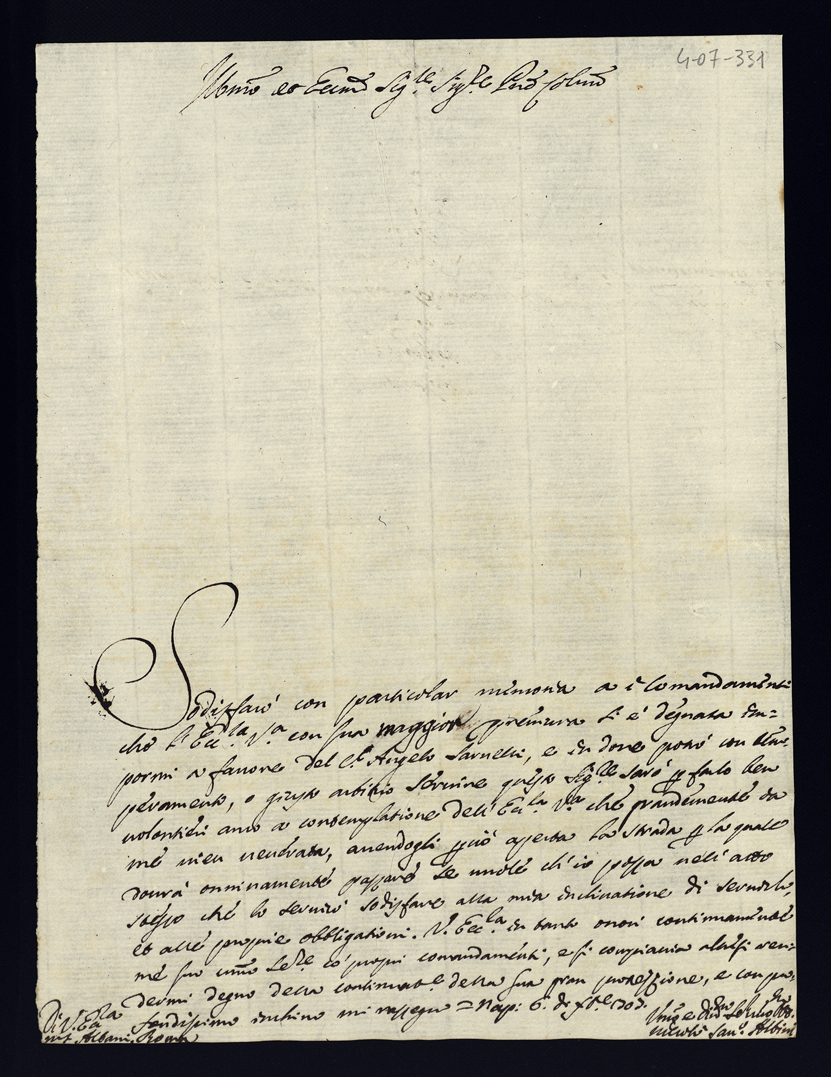 4-07-331
Illmo et Eccmo Sig.re Sig.re Prõ Colmo
Sodisfarò con particolar memoria a i Comandamenti
che l'Ecc.la V.ra con sua maggior premura si è degnata im=
pormi a favore del C.e Angelo Sarnelli, e in dove potrò con
o giusto arbitrio servire questo Sig.re sarò p farlo ben
volontieri anco a contemplatione dell'Ecc.la V.ra che grandemente da
me vien venerata, avendogli già aperta la strada p la quale
dovrà onninamente passare se vuole ch'io possa nell'atto
stesso che lo servirò sodisfare alla mia inclinatione di servirlo,
et alle proprie obbligationi. V.ra Ecc.la in tanto onori continuamente
me suo co' proprii comandamenti, e si compiacia altresì ren=
dermi degno della continuat.e della sua gran protezzione, e con pro=
fondissimo inchino mi rassegno = Nap: 6. di 703.
Di V. Ecc.la
Albani. Roma